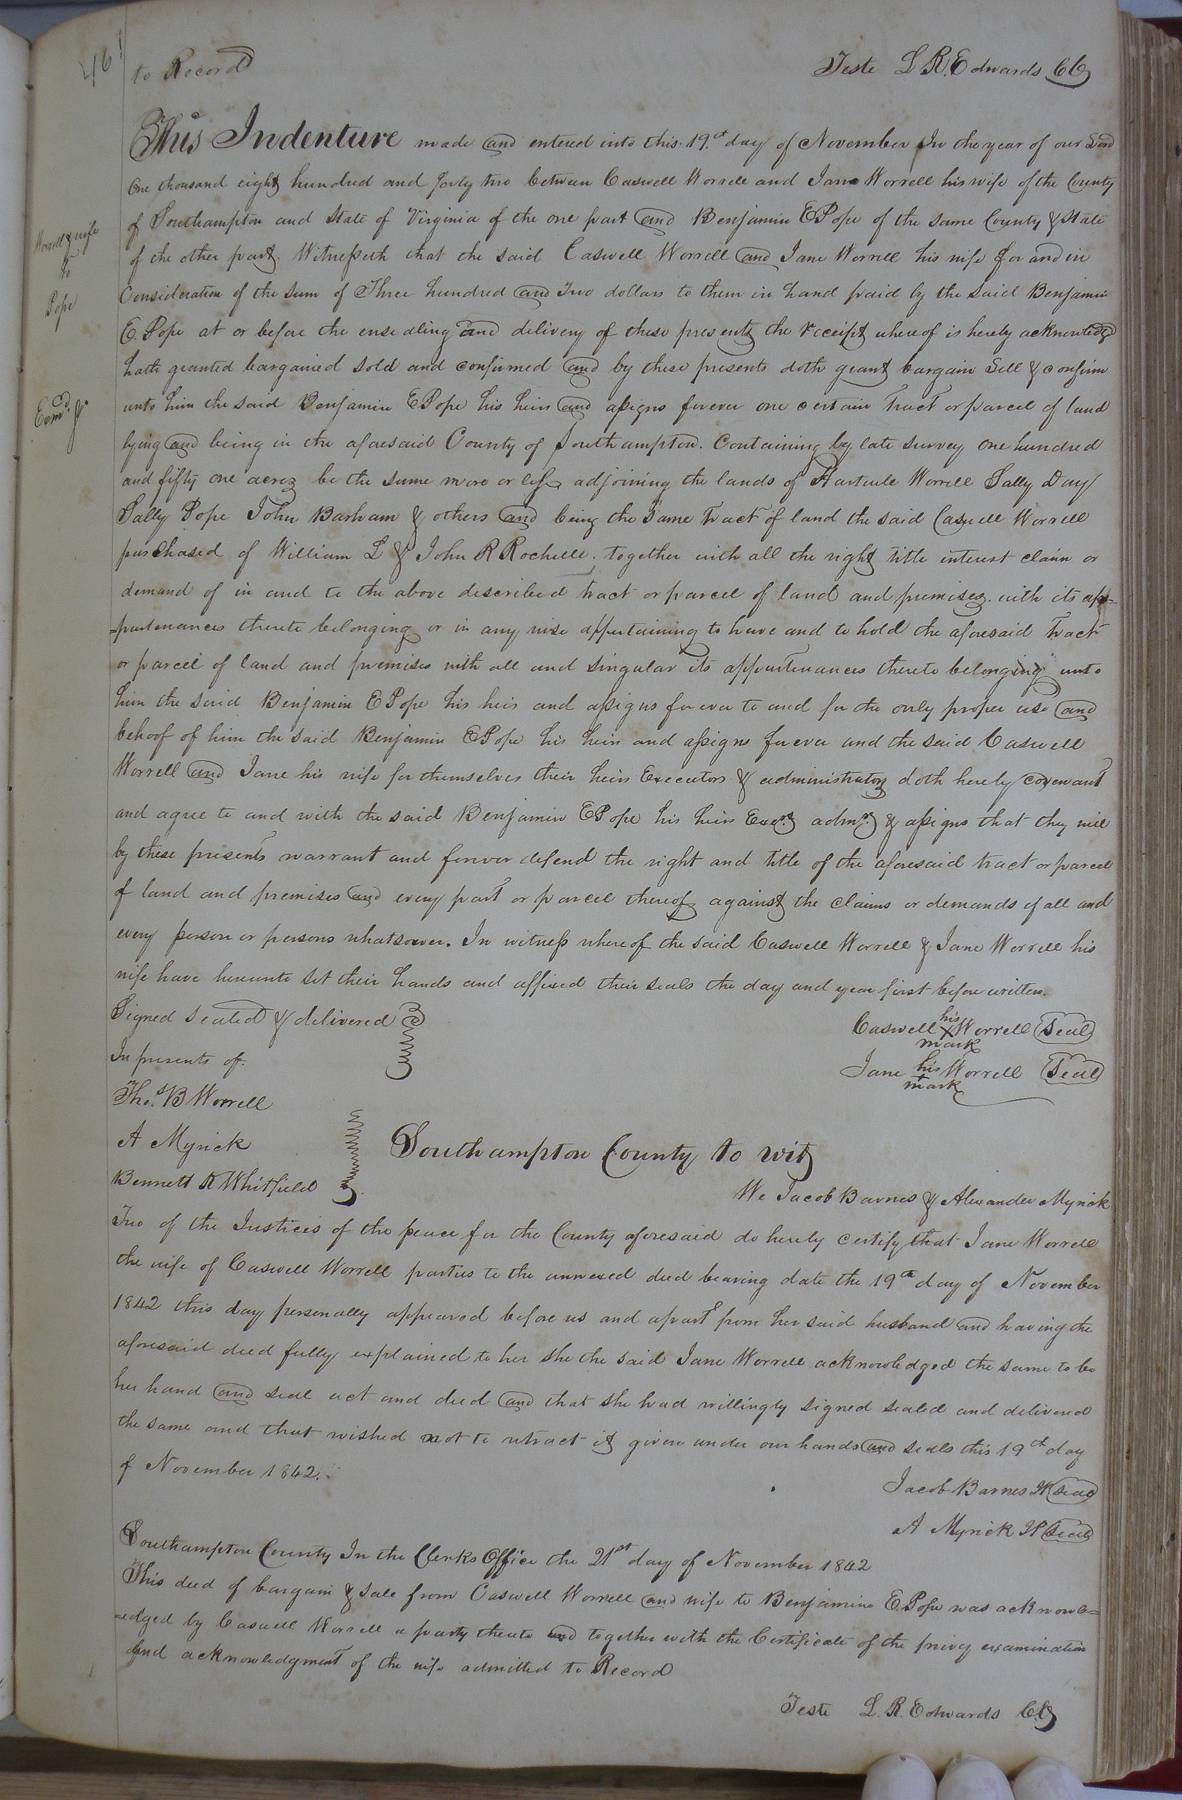 461
to Record Teste L R. Edwards CC
This Indenture made and entered into this 19th day of November In the year of our Lord
One thousand eight hundred and forty two between Caswell Worrell and Jane Worrell his wife of the County
of Southampton and State of Virginia of the one part and Benjamin E Pope of the same County & State
Worrell & wife
to
Pope
of the other part. Witnesseth that the said Caswell Worrell and Jane Worrell his wife for and in
Consideration of the sum of Three hundred and Two dollars to them in hand paid by the said Benjamin
E. Pope at or before the ensealing and delivery of these presents the receipt whereof is hereby acknowledg
hath granted bargained sold and confirmed and by these presents doth grant bargain Sell & confirm
Exmd
unto him the said Benjamin E Pope his heirs and assigns forever one certain Tract or parcel of land
lying and being in the aforesaid County of Southampton. Containing by late survey one hundred
and fifty one acres be the same more or less adjoining the lands of Worrell Sally Day
Sally Pope John Barham & others and being the Same Tract of land the said Caswell Worrell
purchased of William L & John R Rochelle. together with all the right title interest claim or
demand of in and to the above described tract or parcel of land and premises. with its ap-
-purtenances thereto belonging or in any wise appertaining to have and to hold the aforesaid Tract
or parcel of land and premises with all and singular its appurtenances thereto belonging unto
him the said Benjamin E Pope his heirs and assigns forever to and for the only proper use and
behoof of him the said Benjamin E Pope his heirs and assigns forever and the said Caswell
Worrell and Jane his wife for themselves their heirs Executors & administrators doth hereby covenant
and agree to and with the said Benjamin E Pope his heirs Exers admrs & assigns that they will
by these presents warrant and forever defend the right and title of the aforesaid tract or parcel
of land and premises and every part or parcel thereof against the claims or demands of all and
every person or persons whatsoever. In witness whereof the said Caswell Worrell & Jane Worrell his
wife have hereunto set their hands and affixed their seals the day and year first before written.
Signed sealed & delivered
In presents of.
Caswell his X mark Worrell Seal
Jane his + mark Worrell Seal
Thos. B Worrell
A Myrick
Bennett R Whitfield
Southampton County to wit
We Jacob Barnes & Alexander Myrick
Two of the Justices of the peace for the County aforesaid do hereby certify that Jane Worrell
the wife of Caswell Worrell parties to the annexed deed bearing date the 19th day of November
1842 this day personally appeared before us and apart from her said husband and having the
aforesaid deed fully explained to her she the said Jane Worrell acknowledged the same to be
her hand and seal act and deed and that she had willingly signed sealed and delivered
the same and that wished not to retract it given under our hands and seals this 19th day
of November 1842.
Jacob Barnes JP Seal
A Myrick JP Seal
Southampton County In the Clerks Office the 21st day of November 1842
This deed of bargain & Sale from Caswell Worrell and wife to Benjamine E. Pope was acknowl-
-edged by Caswell Worrell a party thereto and together with the Certificate of the privy examination
And acknowledgment of the wife admitted to Record
Teste L. R. Edwards CC